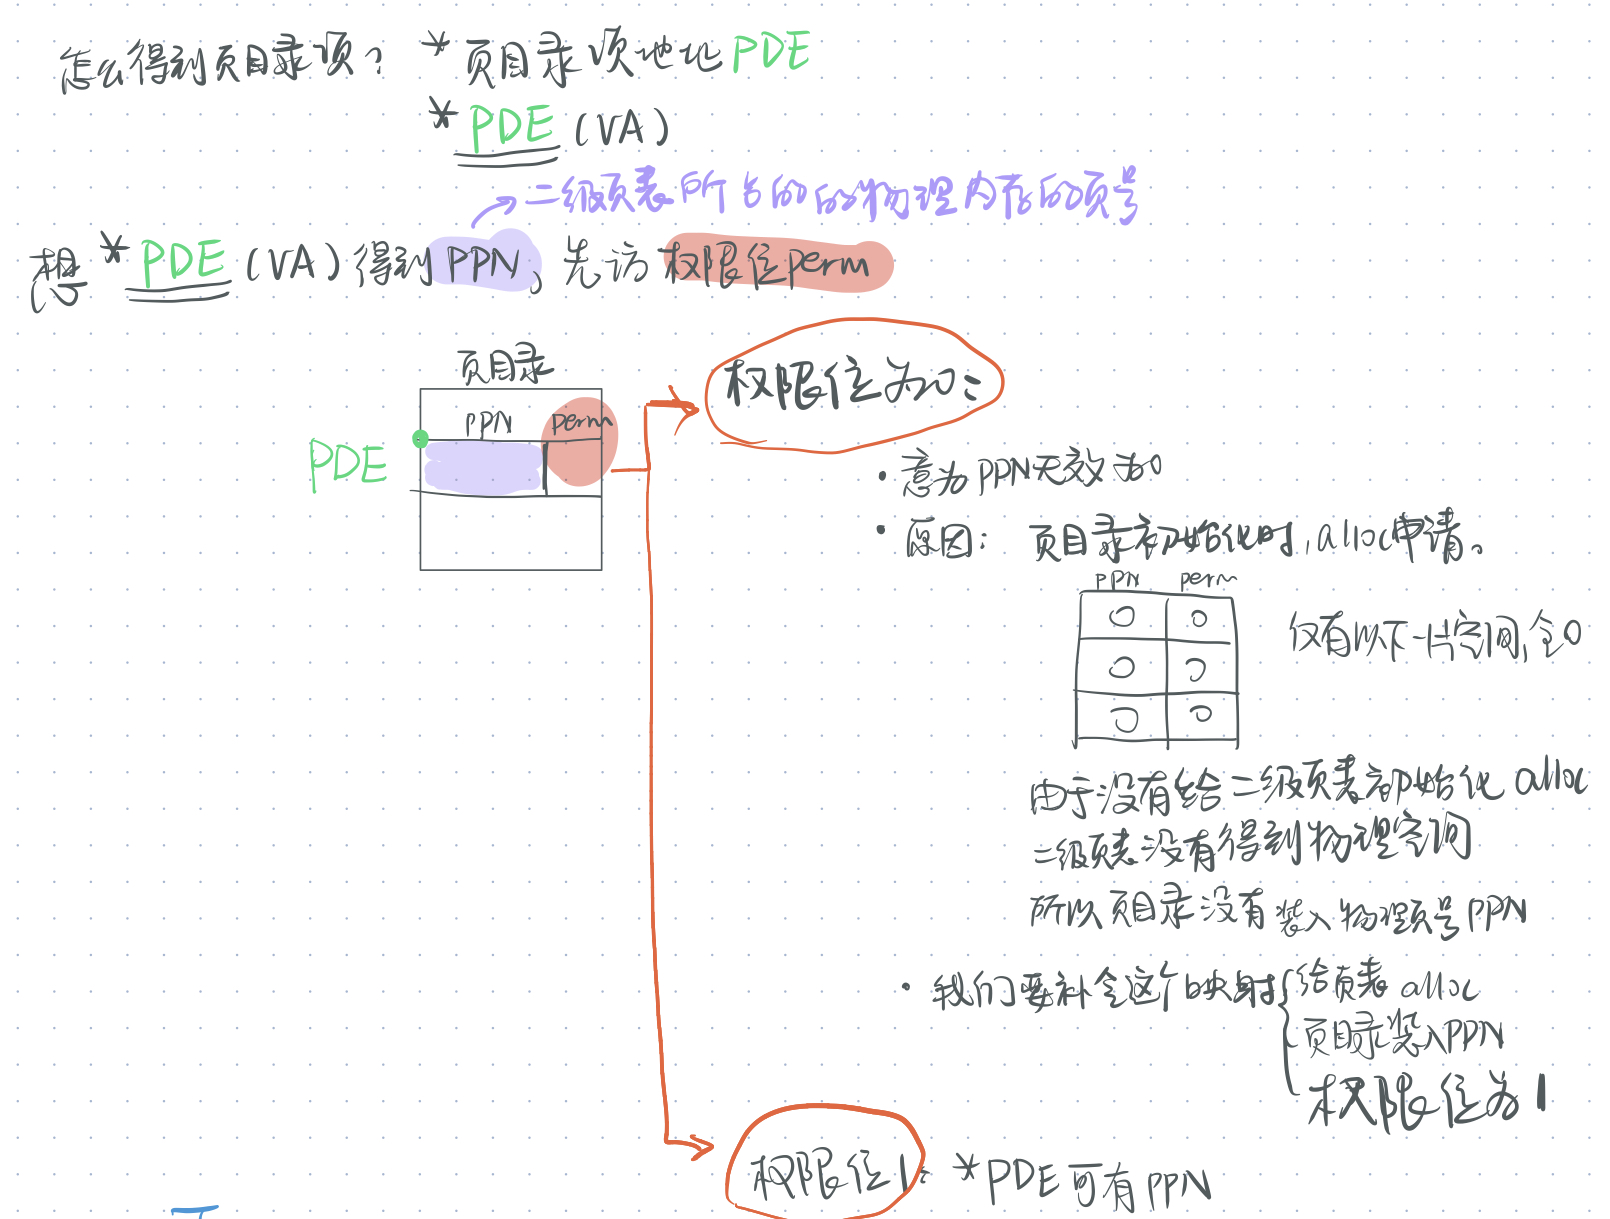 怎么得到页目录项? *页目录项地址PDE
*PDE(VA)
→二级页表所占的的物理内存的页号
想*PDE(VA)得到PPN,先访权限位perm
页目录
PPN perm
PDE
权限位为0:
·意为PPN无效为0
·原因: 页目录初始化时,alloc申请。
ppN perm
0 0
0 0
0 0
仅有以下一片空间,全0
由于没有给二级页表初始化alloc
二级页表没有得到物理空间
所以页目录没有装入物理页号PPN
·我们要补全这个映射{给页表alloc
页目录装入PPN
权限位为1
权限位1: *PDE可有PPN